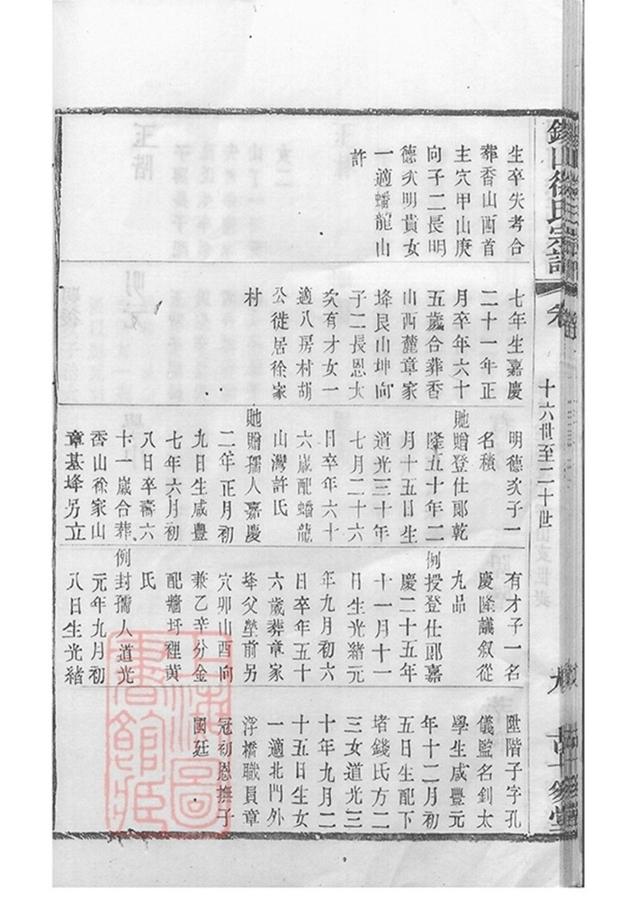 生卒失考合
葬香山酉首
主穴甲山庚
向子二長明
德次明貴女
一適蟠龍山
許
七年生嘉慶
二十一年正
月卒年六十
五歲合葬香
山西麓章家
垰艮山坤向
子二長恩太
次有才女一
適八房村胡
公徙居徐家
村
明德次子一
名積
貤贈登仕郎乾
隆五十年二
月十五日生
道光三十年
七月二十六
日卒年六十
六歲配蟠龍
山灣許氏
貤贈孺人嘉慶
二年正月初
九日生咸豐
七年六月初
八日卒壽六
十一歲合葬
香山徐家山
章基垰另立
有才子一名
慶隆議叙從
九品
例授登仕郎嘉
慶二十五年
十一月十一
日生光緒元
年九月初六
日卒年五十
六歲葬章家
垰父塋前另
穴卯山酉向
兼乙辛分金
配牆圩裡黄
氏
例封孺人道光
元年九月初
八日生光緒
陞階子字孔
儀監名釗太
學生咸豐元
年十二月初
五日生配下
堵錢氏方二
三女道光三
十年九月二
十五日生女
一適北門外
浮橋職員章
冠初恩撫子
國廷
山徐氏宗譜
卷
十六世至二十世